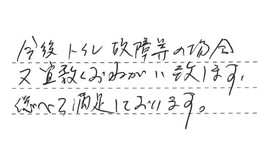 今後トイレ故障等の場合
又宜敷くおねがい致します。
総べて満足しております。